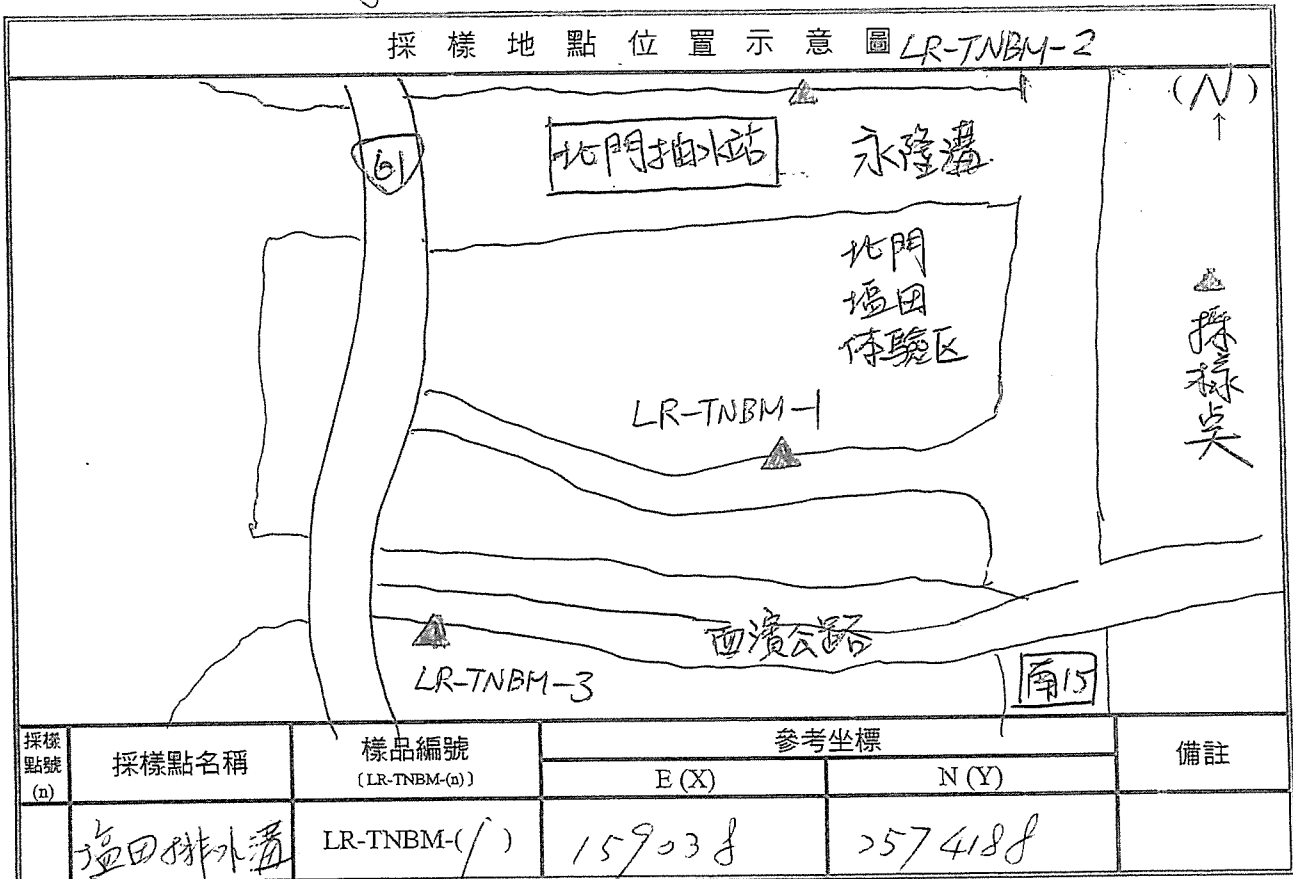 採樣地點位置示意圖 LR-TNBM-2
(N)
↑
61
北門抽水站
永隆溝
北門
塩田
体驗区
採樣点
LR-TNBM-1
西濱公路
LR-TNBM-3
南15
採樣點號(n)
採樣點名稱
樣品編號
〔LR-TNBM-(n)〕
參考坐標
E (X)
N (Y)
備註
塩田排水溝
LR-TNBM-(1)
159038
2574188